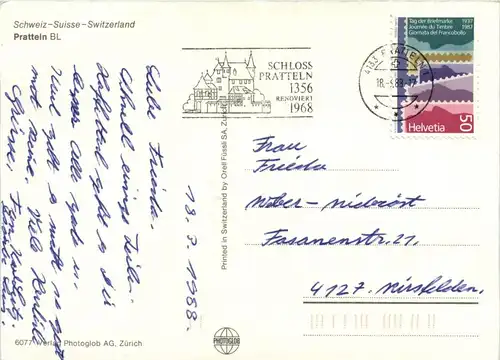 Schweiz-Suisse-Switzerland
Pratteln BL
Tag der Briefmarke 1937
Journée du Timbre 1987
Giornata del Francobollo
Helvetia
50
4133 PRATTELN 1
18.-3.88-17
SCHLOSS
PRATTELN
1356
RENOVIERT
1968
Liebe Frieda.
Schnell einige Zeilen.
geht es Dir
Alle gute
geht es nicht so gut
mit
Viele herzl
Grüsse,
18.3.1988.
Printed in Switzerland by Orell Füssli SA, Zürich
Frau
Frieda
Weber-Nideröst
Fasanenstr. 21,
4127. Birsfelden.
6077 Verlag Photoglob AG, Zürich
PHOTOGLOB